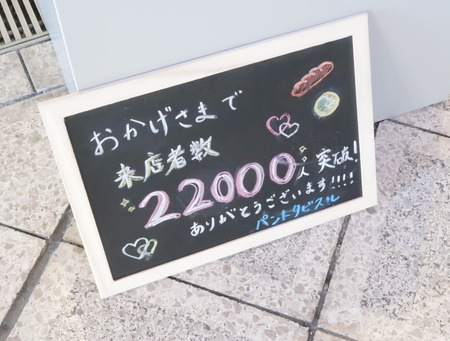 おかげさまで
来店者数
22000人 突破!
ありがとうございます!!!!
パンドタビスル